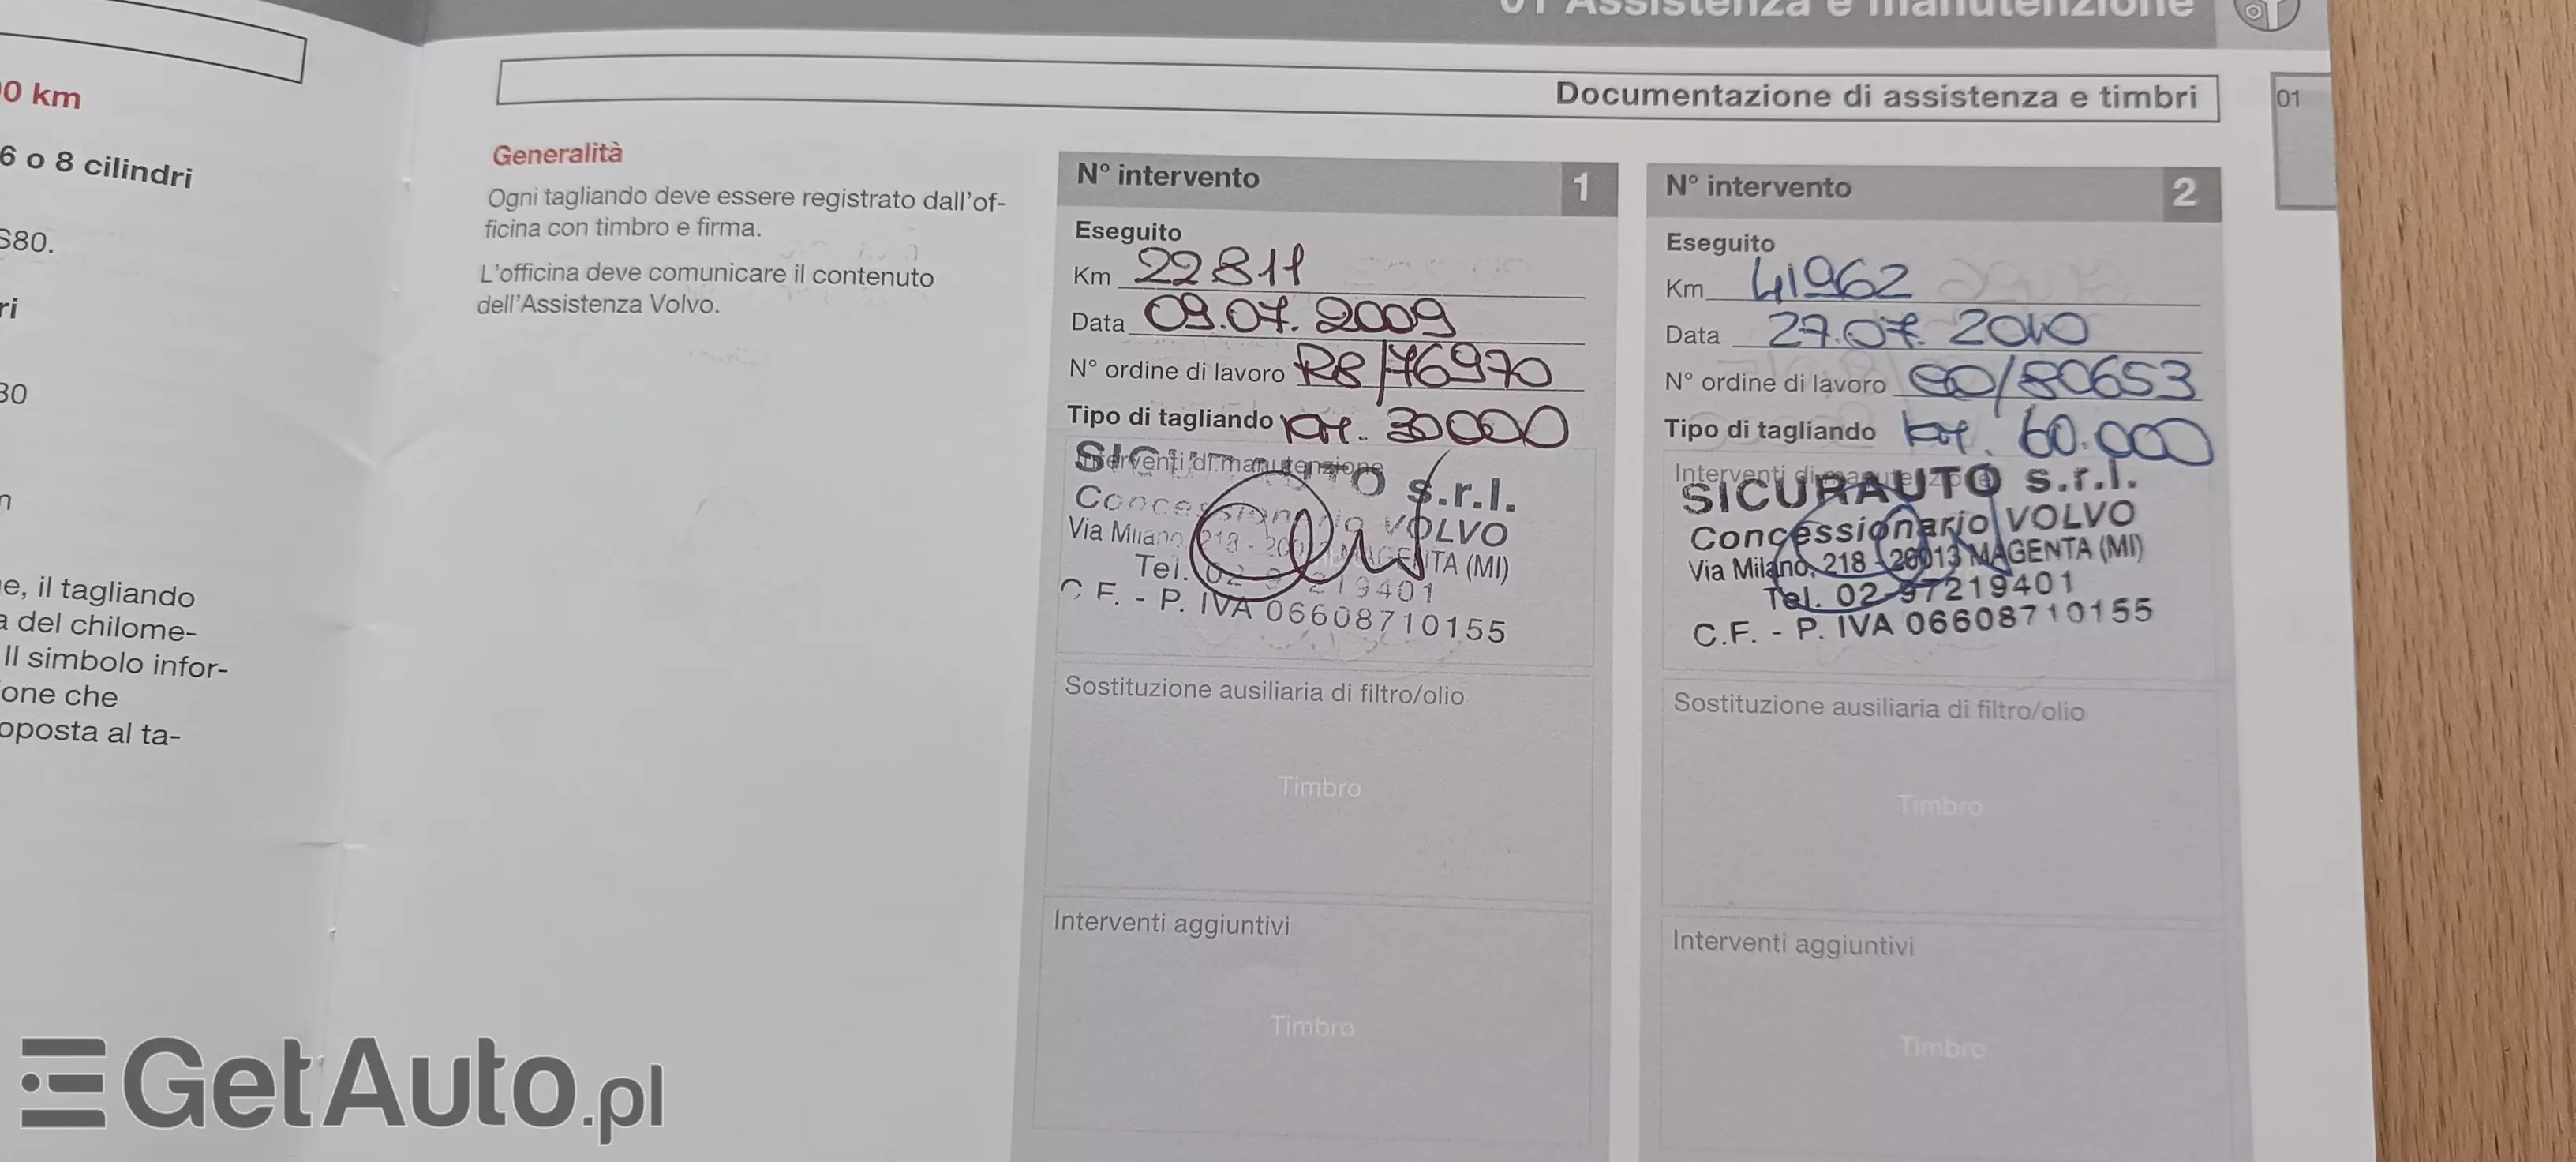 01 Assistenza e manutenzione
Documentazione di assistenza e timbri
01
0 km
6 o 8 cilindri
S80.
ri
30
n
e, il tagliando
a del chilome-
Il simbolo infor-
one che
oposta al ta-
Generalità
Ogni tagliando deve essere registrato dall'of-
ficina con timbro e firma.
L'officina deve comunicare il contenuto
dell'Assistenza Volvo.
N° intervento 1
Eseguito
Km 22811
Data 09.07.2009
N° ordine di lavoro R8/76970
Tipo di tagliando 30000
Interventi di manutenzione
s.r.l.
Concessionario VOLVO
Via Milano, 218 - MAGENTA (MI)
Tel. 02 97219401
C.F. - P. IVA 06608710155
Sostituzione ausiliaria di filtro/olio
Timbro
Interventi aggiuntivi
Timbro
N° intervento 2
Eseguito
Km 41962
Data 27.07.2010
N° ordine di lavoro /80653
Tipo di tagliando 60.000
Interventi di manutenzione
SICURAUTO s.r.l.
Concessionario VOLVO
Via Milano, 218 - 20013 MAGENTA (MI)
Tel. 02-97219401
C.F. - P. IVA 06608710155
Sostituzione ausiliaria di filtro/olio
Timbro
Interventi aggiuntivi
Timbro
GetAuto.pl